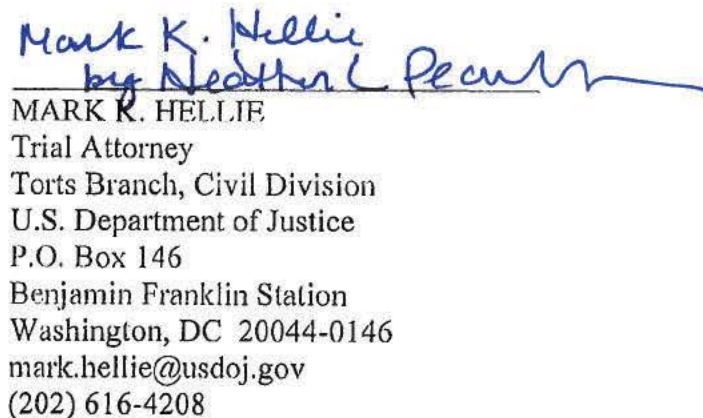 Mark K. Hellie
by Heather L
MARK K. HELLIE
Trial Attorney
Torts Branch, Civil Division
U.S. Department of Justice
P.O. Box 146
Benjamin Franklin Station
Washington, DC 20044-0146
mark.hellie@usdoj.gov
(202) 616-4208